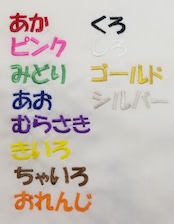 あか
ピンク
みどり
あお
むらさき
きいろ
ちゃいろ
おれんじ
くろ
しろ
ゴールド
シルバー